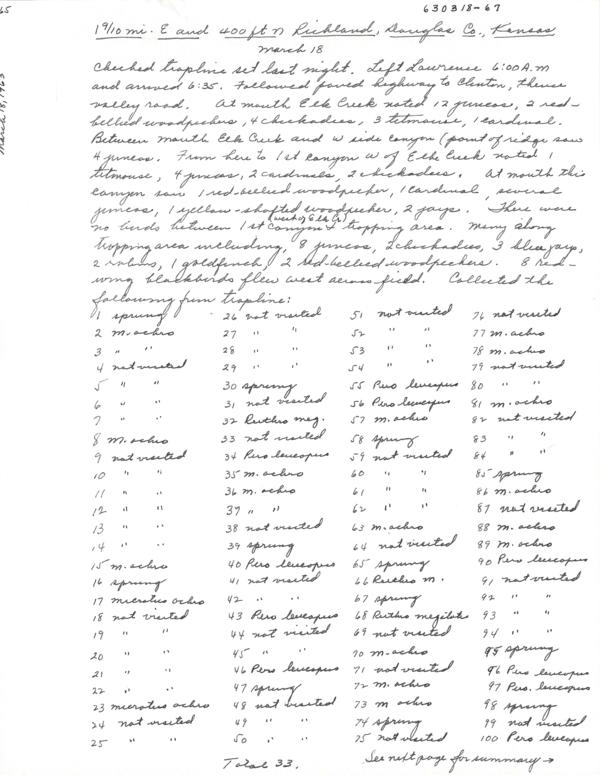 65
630318-67
March 18, 1963
1 9/10 mi. E and 400 ft N Richland, Douglas Co., Kansas
March 18
Checked trapline set last night. Left Lawrence 6:00 A.M
and arrived 6:35. Followed paved highway to Clinton, thence
valley road. At mouth Elk Creek noted 12 juncos, 2 red-
bellied woodpeckers, 4 chickadees, 3 titmouse, 1 cardinal.
Between mouth Elk Creek and W side canyon (point of ridge saw
4 juncos. From here to 1st canyon W of Elk Creek noted 1
titmouse, 4 juncos, 2 cardinals, 2 chickadees. At mouth this
canyon saw 1 red-bellied woodpecker, 1 cardinal, several
juncos, 1 yellow-shafted woodpecker, 2 jays. There were
no birds between 1st canyon (west of Elk Cr) & trapping area. Many along
trapping area including, 8 juncos, 2 chickadees, 3 blue jays,
2 robins, 1 goldfinch, 2 red-bellied woodpeckers. 8 red-
wing blackbirds flew west across field. Collected the
following from trapline:
1 sprung
2 m. ochro
3 " "
4 not visited
5 " "
6 " "
7 " "
8 m. ochro
9 not visited
10 " "
11 " "
12 " "
13 " "
14 " "
15 m. ochro
16 sprung
17 microtus ochro
18 not visited
19 " "
20 " "
21 " "
22 " "
23 microtus ochro
24 not visited
25 " "
26 not visited
27 " "
28 " "
29 " "
30 sprung
31 not visited
32 Reithro meg.
33 not visited
34 Pero leucopus
35 m. ochro
36 m. ochro
37 " "
38 not visited
39 sprung
40 Pero leucopus
41 not visited
42 " "
43 Pero leucopus
44 not visited
45 " "
46 Pero leucopus
47 sprung
48 not visited
49 " "
50 " "
51 not visited
52 " "
53 " "
54 " "
55 Pero leucopus
56 Pero leucopus
57 m. ochro
58 sprung
59 not visited
60 " "
61 " "
62 " "
63 m. ochro
64 not visited
65 sprung
66 Reithro m.
67 sprung
68 Reithro megilotis
69 not visited
70 m. ochro
71 not visited
72 m. ochro
73 m ochro
74 sprung
75 not visited
76 not visited
77 m. ochro
78 m. ochro
79 not visited
80 " "
81 m. ochro
82 not visited
83 " "
84 " "
85 sprung
86 m. ochro
87 not visited
88 m. ochro
89 m. ochro
90 Pero leucopus
91 not visited
92 " "
93 " "
94 " "
95 sprung
96 Pero leucopus
97 Pero. leucopus
98 sprung
99 not visited
100 Pero leucopus
Total 33.
See next page for summary →